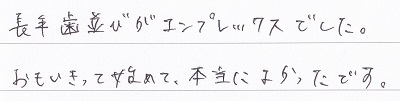 長年歯並びがコンプレックスでした。
おもいきって始めて、本当によかったです。